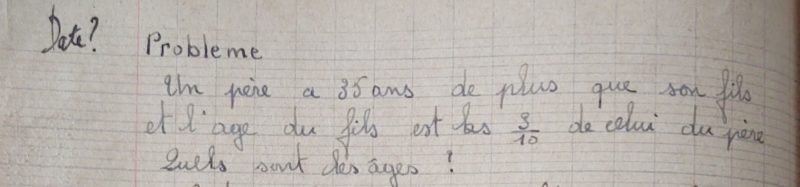 Date?
Probleme
Un père a 35 ans de plus que son fils
et l'age du fils est les 3/10 de celui du père
Quels sont les âges ?